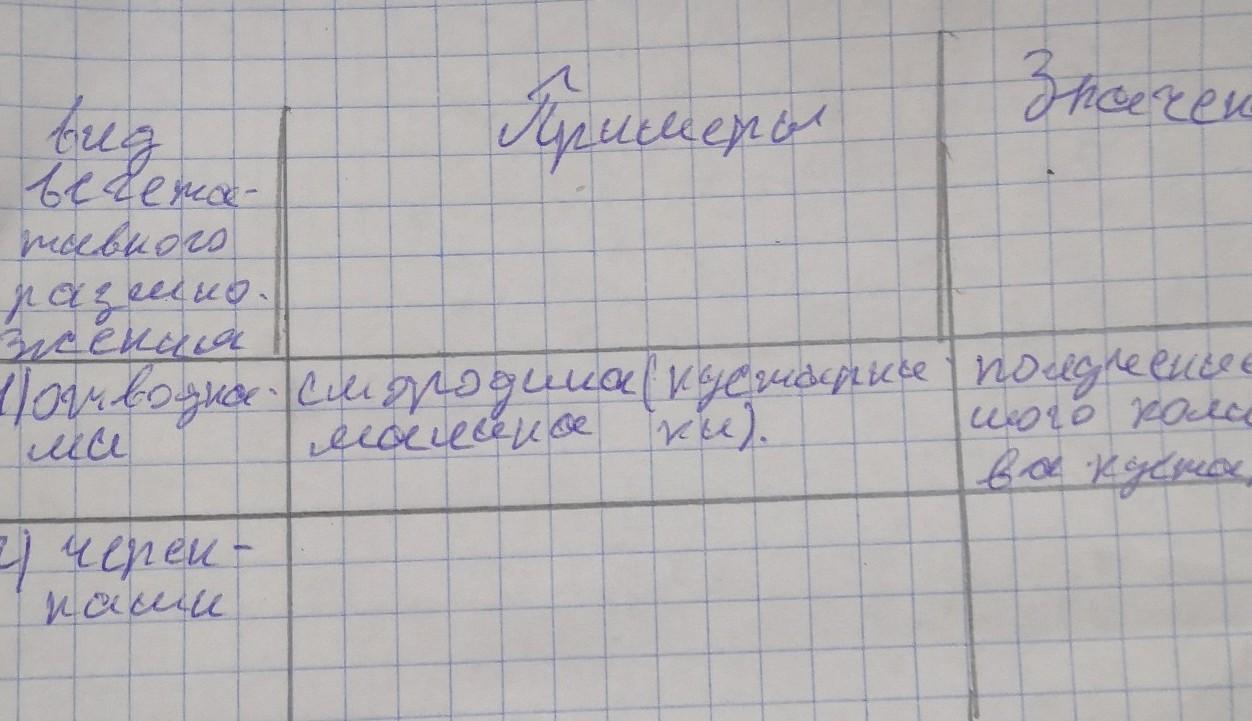 вид
вегета-
тивного
размно-
жения
Примеры
Значен
1) отводка-
ми
смородина (кустарни
малина ки).
получение
ного коли
ва куста,
2) черен-
ками